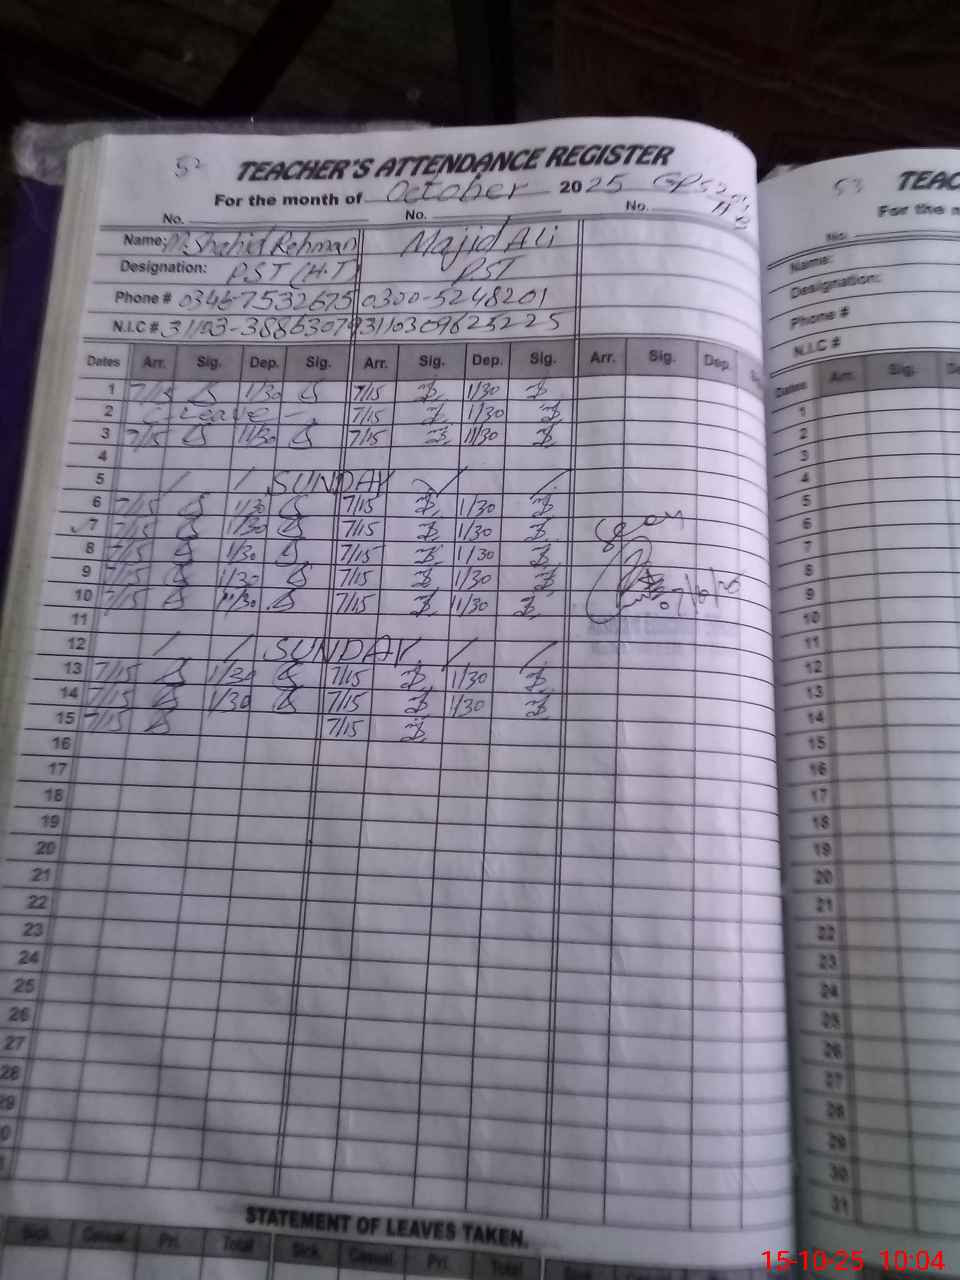 52 TEACHER'S ATTENDANCE REGISTER
For the month of October 2025
No. No. No.
Name: M. Shahid Rehman Majid Ali
Designation: PST (H.T) PST
Phone # 03467532675 0300-5248201
N.I.C # 31103-388630793110309625225
Dates Arr. Sig. Dep. Sig. Arr. Sig. Dep. Sig. Arr. Sig. Dep.
1 7/15 1/30 7/15 1/30
2 C Leave - 7/15 1/30
3 7/15 11/30 7/15 11/30
4
5 / / SUNDAY / /
6 7/15 1/30 7/15 1/30
7 7/15 1/30 7/15 1/30
8 7/15 1/30 7/15 1/30
9 7/15 1/30 7/15 1/30
10 7/15 11/30 7/15 11/30
11
12 / / SUNDAY / /
13 7/15 1/30 7/15 1/30
14 7/15 1/30 7/15 1/30
15 7/15 7/15
16
17
18
19
20
21
22
23
24
25
26
27
28
29
STATEMENT OF LEAVES TAKEN.
Sick Casual Pri. Total Sick Casual Pri. Total
53 TEAC
For the m
No.
Name:
Designation:
Phone #
N.I.C #
Dates Arr. Sig.
1
2
3
4
5
6
7
8
9
10
11
12
13
14
15
16
17
18
19
20
21
22
23
24
25
26
27
28
29
30
31
15-10-25 10:04